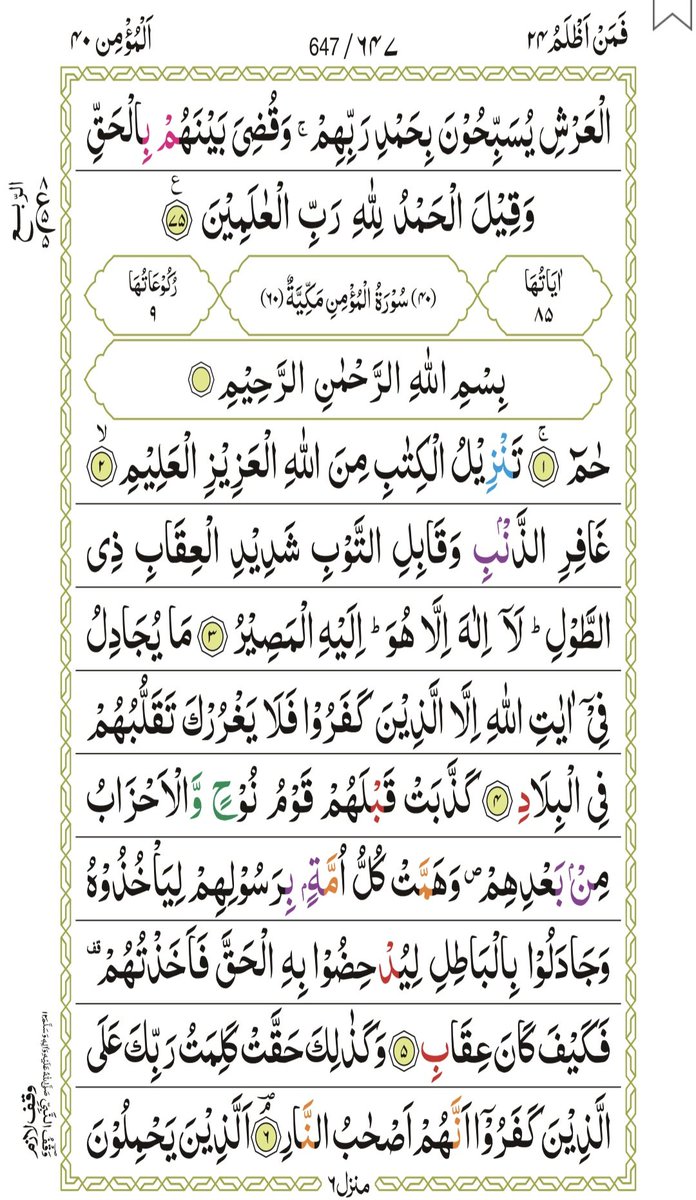 فَمَنْ اَظْلَمُ ٢٤
647 / ٦٤٧
اَلْمُؤْمِن ٤٠
الْعَرْشِ يُسَبِّحُوْنَ بِحَمْدِ رَبِّهِمْ ۚ وَقُضِيَ بَيْنَهُمْ بِالْحَقِّ
وَقِيْلَ الْحَمْدُ لِلّٰهِ رَبِّ الْعٰلَمِيْنَ ۧ ﴿٧٥﴾
الرّبع
اٰيَاتُهَا ٨٥
﴿٤٠﴾ سُوْرَةُ الْمُؤْمِنِ مَكِّيَّةٌ ﴿٦٠﴾
رُكُوْعَاتُهَا ٩
بِسْمِ اللّٰهِ الرَّحْمٰنِ الرَّحِيْمِ
حٰمٓ ۚ ﴿١﴾ تَنْزِيْلُ الْكِتٰبِ مِنَ اللّٰهِ الْعَزِيْزِ الْعَلِيْمِ ۙ ﴿٢﴾
غَافِرِ الذَّنْۢبِ وَقَابِلِ التَّوْبِ شَدِيْدِ الْعِقَابِ ذِى
الطَّوْلِ ؕ لَاۤ اِلٰهَ اِلَّا هُوَ ؕ اِلَيْهِ الْمَصِيْرُ ﴿٣﴾ مَا يُجَادِلُ
فِىْۤ اٰيٰتِ اللّٰهِ اِلَّا الَّذِيْنَ كَفَرُوْا فَلَا يَغْرُرْكَ تَقَلُّبُهُمْ
فِى الْبِلَادِ ﴿٤﴾ كَذَّبَتْ قَبْلَهُمْ قَوْمُ نُوْحٍ وَّالْاَحْزَابُ
مِنْۢ بَعْدِهِمْ ۪ وَهَمَّتْ كُلُّ اُمَّةٍۭ بِرَسُوْلِهِمْ لِيَاْخُذُوْهُ
وَجَادَلُوْا بِالْبَاطِلِ لِيُدْحِضُوْا بِهِ الْحَقَّ فَاَخَذْتُهُمْ قف
فَكَيْفَ كَانَ عِقَابِ ﴿٥﴾ وَكَذٰلِكَ حَقَّتْ كَلِمَتُ رَبِّكَ عَلَى
الَّذِيْنَ كَفَرُوْۤا اَنَّهُمْ اَصْحٰبُ النَّارِ ۘؔ ﴿٦﴾ اَلَّذِيْنَ يَحْمِلُوْنَ
وقف لازم
منزل ٦